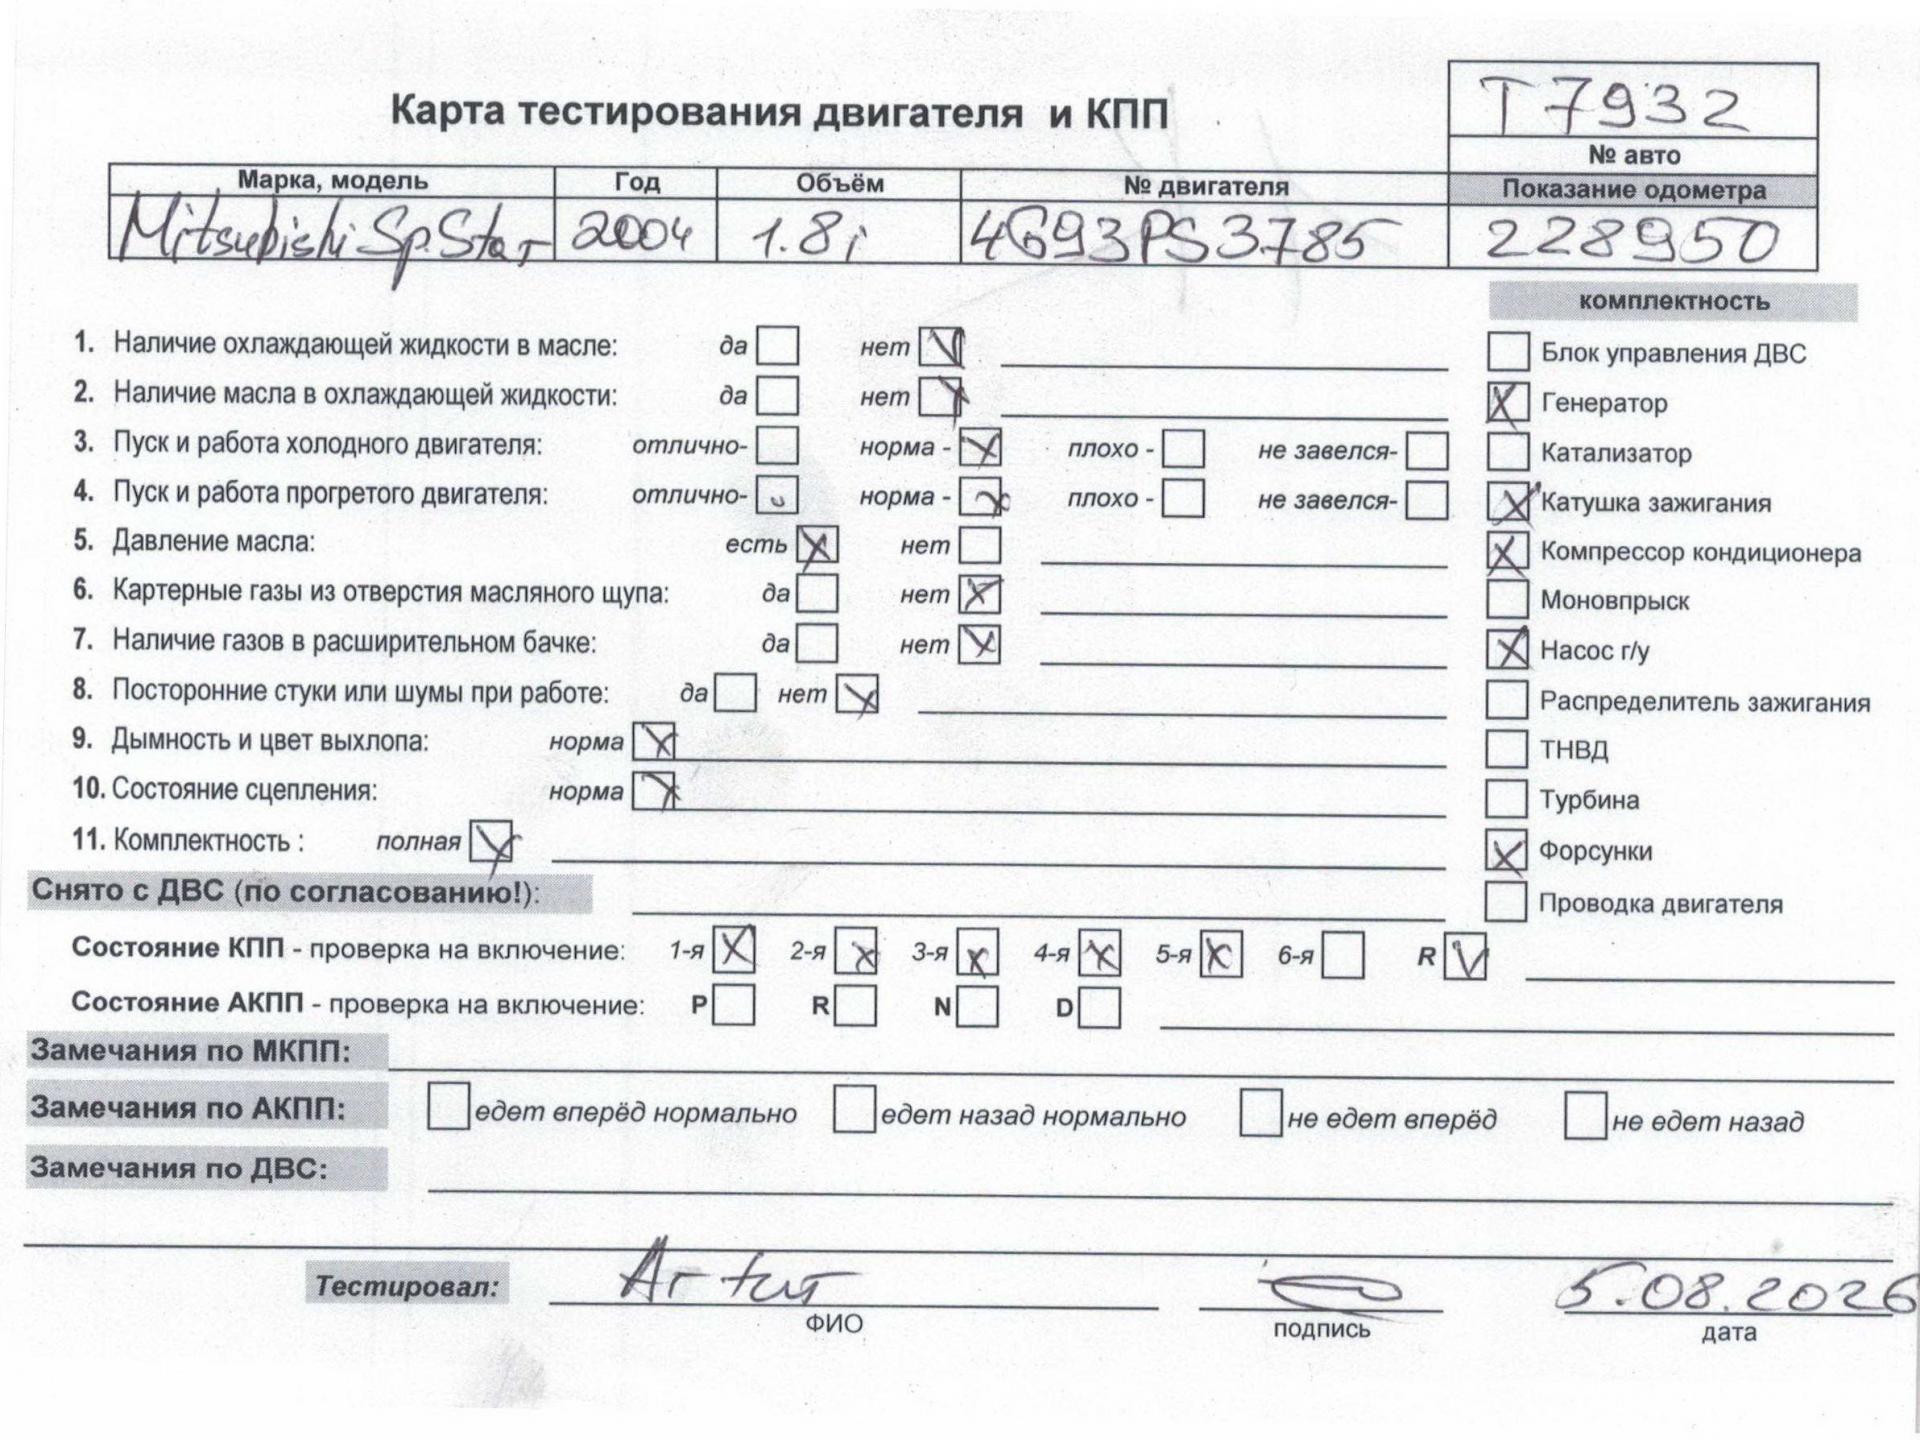 Т 7932
Карта тестирования двигателя и КПП
№ авто
Марка, модель Год Объём № двигателя Показание одометра
Mitsubishi Sp.Star 2004 1.8i 4G93PS3785 228950
комплектность
1. Наличие охлаждающей жидкости в масле: да нет
Блок управления ДВС
2. Наличие масла в охлаждающей жидкости: да нет
Генератор
3. Пуск и работа холодного двигателя: отлично- норма - плохо - не завелся-
Катализатор
4. Пуск и работа прогретого двигателя: отлично- норма - плохо - не завелся-
Катушка зажигания
5. Давление масла: есть нет
Компрессор кондиционера
6. Картерные газы из отверстия масляного щупа: да нет
Моновпрыск
7. Наличие газов в расширительном бачке: да нет
Насос г/у
8. Посторонние стуки или шумы при работе: да нет
Распределитель зажигания
9. Дымность и цвет выхлопа: норма
ТНВД
10. Состояние сцепления: норма
Турбина
11. Комплектность : полная
Форсунки
Снято с ДВС (по согласованию!):
Проводка двигателя
Состояние КПП - проверка на включение: 1-я 2-я 3-я 4-я 5-я 6-я R
Состояние АКПП - проверка на включение: P R N D
Замечания по МКПП:
Замечания по АКПП: едет вперёд нормально едет назад нормально не едет вперёд не едет назад
Замечания по ДВС:
Тестировал: Artur 5.08.2026
ФИО подпись дата